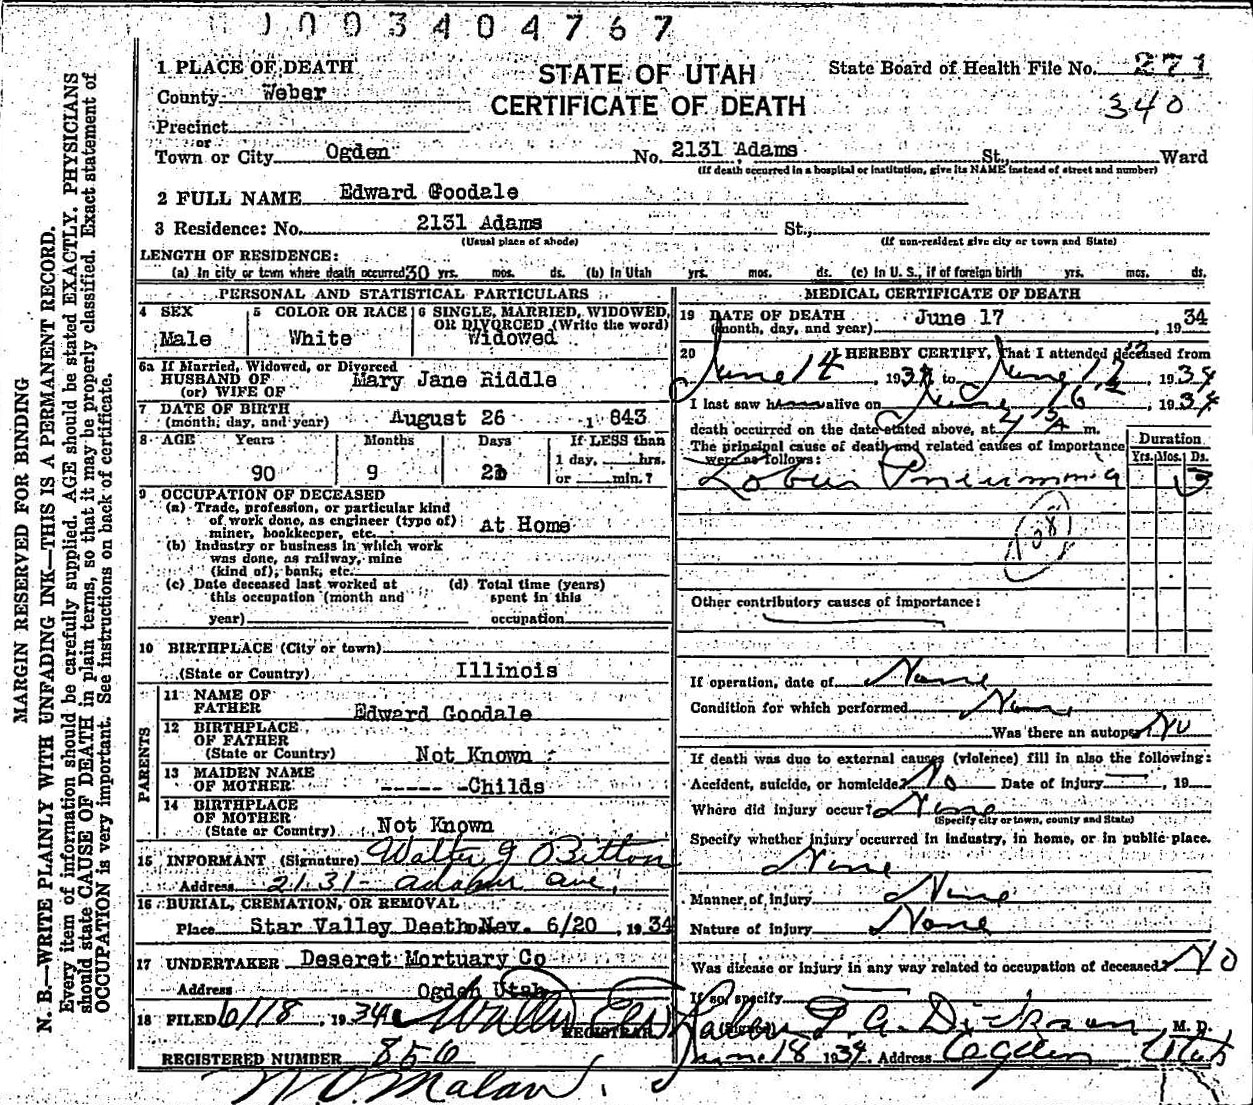 1003404767
1 PLACE OF DEATH
STATE OF UTAH
State Board of Health File No. 271
County Weber
CERTIFICATE OF DEATH
340
Precinct
or
Town or City Ogden No. 2131 Adams St., Ward
(If death occurred in a hospital or institution, give its NAME instead of street and number)
2 FULL NAME Edward Goodale
3 Residence: No. 2131 Adams St.,
(Usual place of abode) (If non-resident give city or town and State)
LENGTH OF RESIDENCE:
(a) In city or town where death occurred 30 yrs. mos. ds. (b) In Utah yrs. mos. ds. (c) In U. S., if of foreign birth yrs. mos. ds.
PERSONAL AND STATISTICAL PARTICULARS
4 SEX
Male
5 COLOR OR RACE
White
6 SINGLE, MARRIED, WIDOWED,
OR DIVORCED (Write the word)
Widowed
6a If Married, Widowed, or Divorced
HUSBAND OF
(or) WIFE OF Mary Jane Riddle
7 DATE OF BIRTH
(month, day, and year) August 26 1843
8 AGE Years Months Days If LESS than
1 day, hrs.
or min.?
90 9
9 OCCUPATION OF DECEASED
(a) Trade, profession, or particular kind
of work done, as engineer (type of)
miner, bookkeeper, etc. At Home
(b) Industry or business in which work
was done, as railway, mine
(kind of), bank, etc.
(c) Date deceased last worked at
this occupation (month and
year)
(d) Total time (years)
spent in this
occupation
10 BIRTHPLACE (City or town)
(State or Country) Illinois
PARENTS
11 NAME OF
FATHER Edward Goodale
12 BIRTHPLACE
OF FATHER
(State or Country) Not Known
13 MAIDEN NAME
OF MOTHER ----- -Childs
14 BIRTHPLACE
OF MOTHER
(State or Country) Not Known
15 INFORMANT (Signature) Walter J Bitton
Address 2131 - Adams Ave,
16 BURIAL, CREMATION, OR REMOVAL
Place Star Valley Deeth Nev. 6/20, 1934
17 UNDERTAKER Deseret Mortuary Co
Address Ogden Utah
18 FILED 6/18, 1934
REGISTRAR
REGISTERED NUMBER 856
W. O. Malan
MEDICAL CERTIFICATE OF DEATH
19 DATE OF DEATH
(month, day, and year) June 17, 1934
20 I HEREBY CERTIFY, That I attended deceased from
June 14, 1934 to June 17, 1934
I last saw h alive on June 16, 1934
death occurred on the date stated above, at m.
The principal cause of death and related causes of importance
were as follows:
Duration
Yrs. Mos. Ds.
Lobar Pneumonia 3
108
Other contributory causes of importance:
If operation, date of None
Condition for which performed None
Was there an autopsy No
If death was due to external causes (violence) fill in also the following:
Accident, suicide, or homicide? No Date of injury , 19
Where did injury occur? None
(Specify city or town, county and State)
Specify whether injury occurred in industry, in home, or in public place.
None
Manner of injury None
Nature of injury None
Was disease or injury in any way related to occupation of deceased? NO
If so, specify
(Signed) Dickson M. D.
June 18 1934 Address Ogden Utah
MARGIN RESERVED FOR BINDING
N. B.—WRITE PLAINLY WITH UNFADING INK—THIS IS A PERMANENT RECORD.
Every item of information should be carefully supplied. AGE should be stated EXACTLY. PHYSICIANS
should state CAUSE OF DEATH in plain terms, so that it may be properly classified. Exact statement of
OCCUPATION is very important. See instructions on back of certificate.